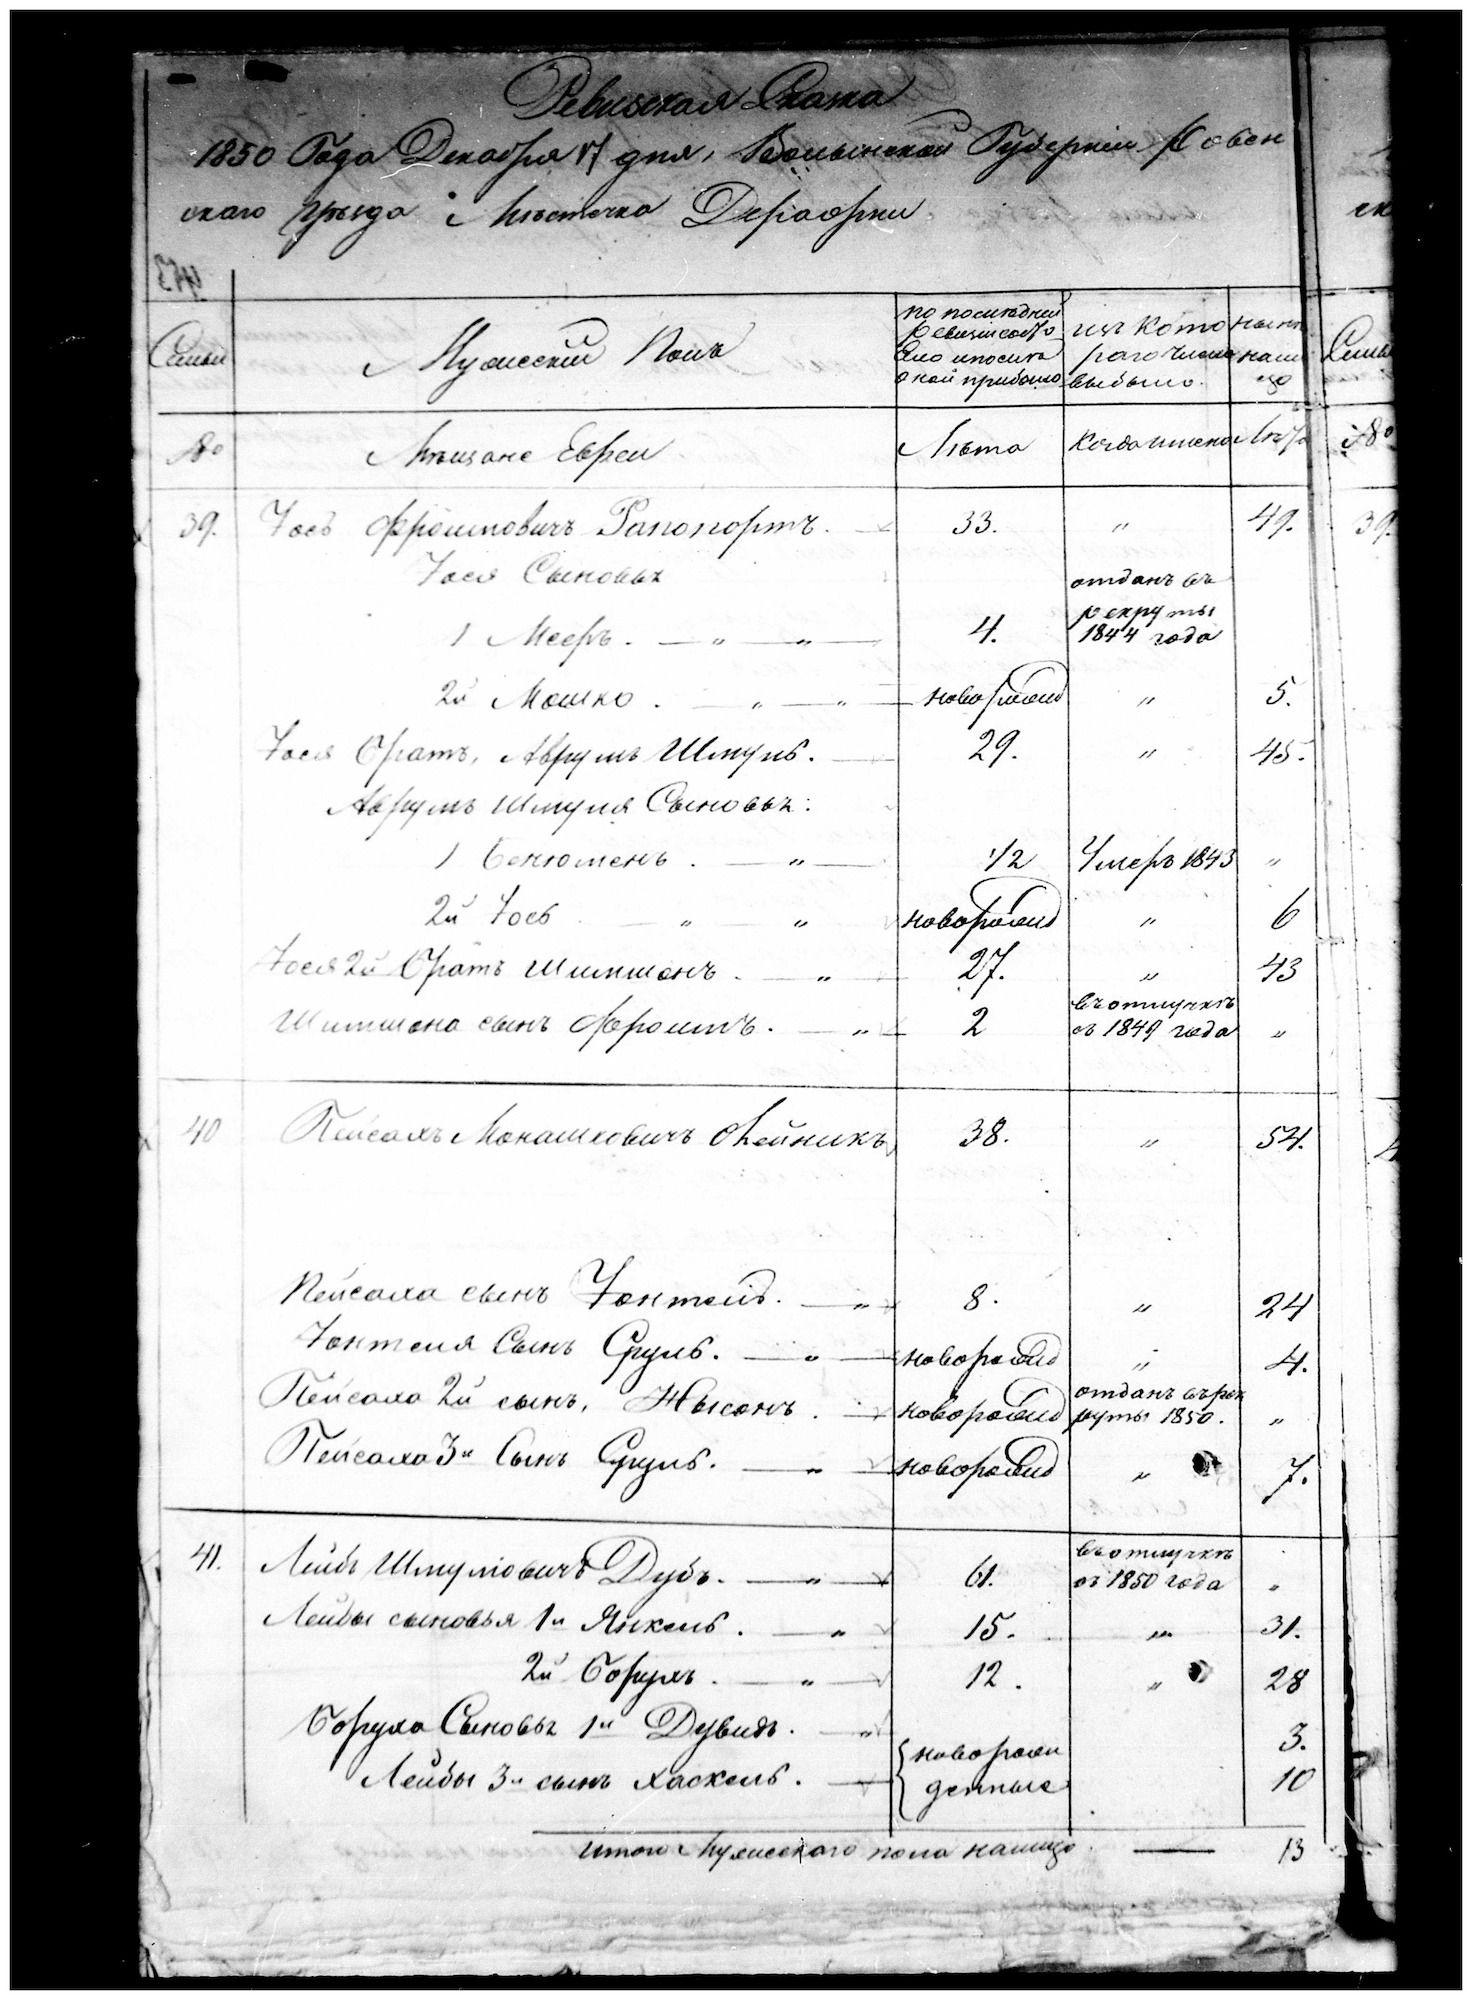 Ревизская Сказка
1850 Года Декабря 17 дня, Волынской Губернии Ровен
скаго уѣзда Мѣстечка Деражни
Семьи
Мужескій Полъ
по послѣдней ревизіи состо яло и послѣ оной прибыло
изъ кото раго числа выбыло.
нынѣ на ли цо
№
Мѣщане Евреи
Лѣта
Когда именно
Лѣта
39. Іось Фроимовичъ Рапопортъ. 33. " 49.
Іося Сыновья
1 Мееръ. — " — " — 4. отданъ въ рекруты 1844 года
2й Мошко. — " — " — новорожд " 5.
Іося братъ, Аврумъ Шмуль. — 29. " 45.
Аврумъ Шмуля Сыновья:
1 Бенюменъ. — " — 1/2 Умеръ 1843 "
2й Іось — " " новорожд " 6
Іося 2й братъ Шимшонъ. — " 27. " 43
Шимшона сынъ Фроимъ. — " — 2 въ отлучкѣ съ 1849 года "
40 Пейсахъ Монашковичъ Олейникъ 38. " 54.
Пейсаха сынъ Іонтель. — " 8. " 24
Іонтеля Сынъ Сруль. — " — новорожд " 4.
Пейсаха 2й сынъ, Нысонъ. — новорожд отданъ въ рек руты 1850. "
Пейсаха 3й Сынъ Сруль. — " — новорожд " 7.
41. Лейбъ Шмулювичъ Дубъ. — " — 61. въ отлучкѣ съ 1850 года "
Лейбы сыновья 1й Янкель. — " 15. " 31.
2й Борухъ. — " — 12. " 28
Боруха Сыновья 1й Дувидъ. — " новорож 3.
Лейбы 3й сынъ Хаскель. — денные 10
Итого Мужескаго пола налицо — 13